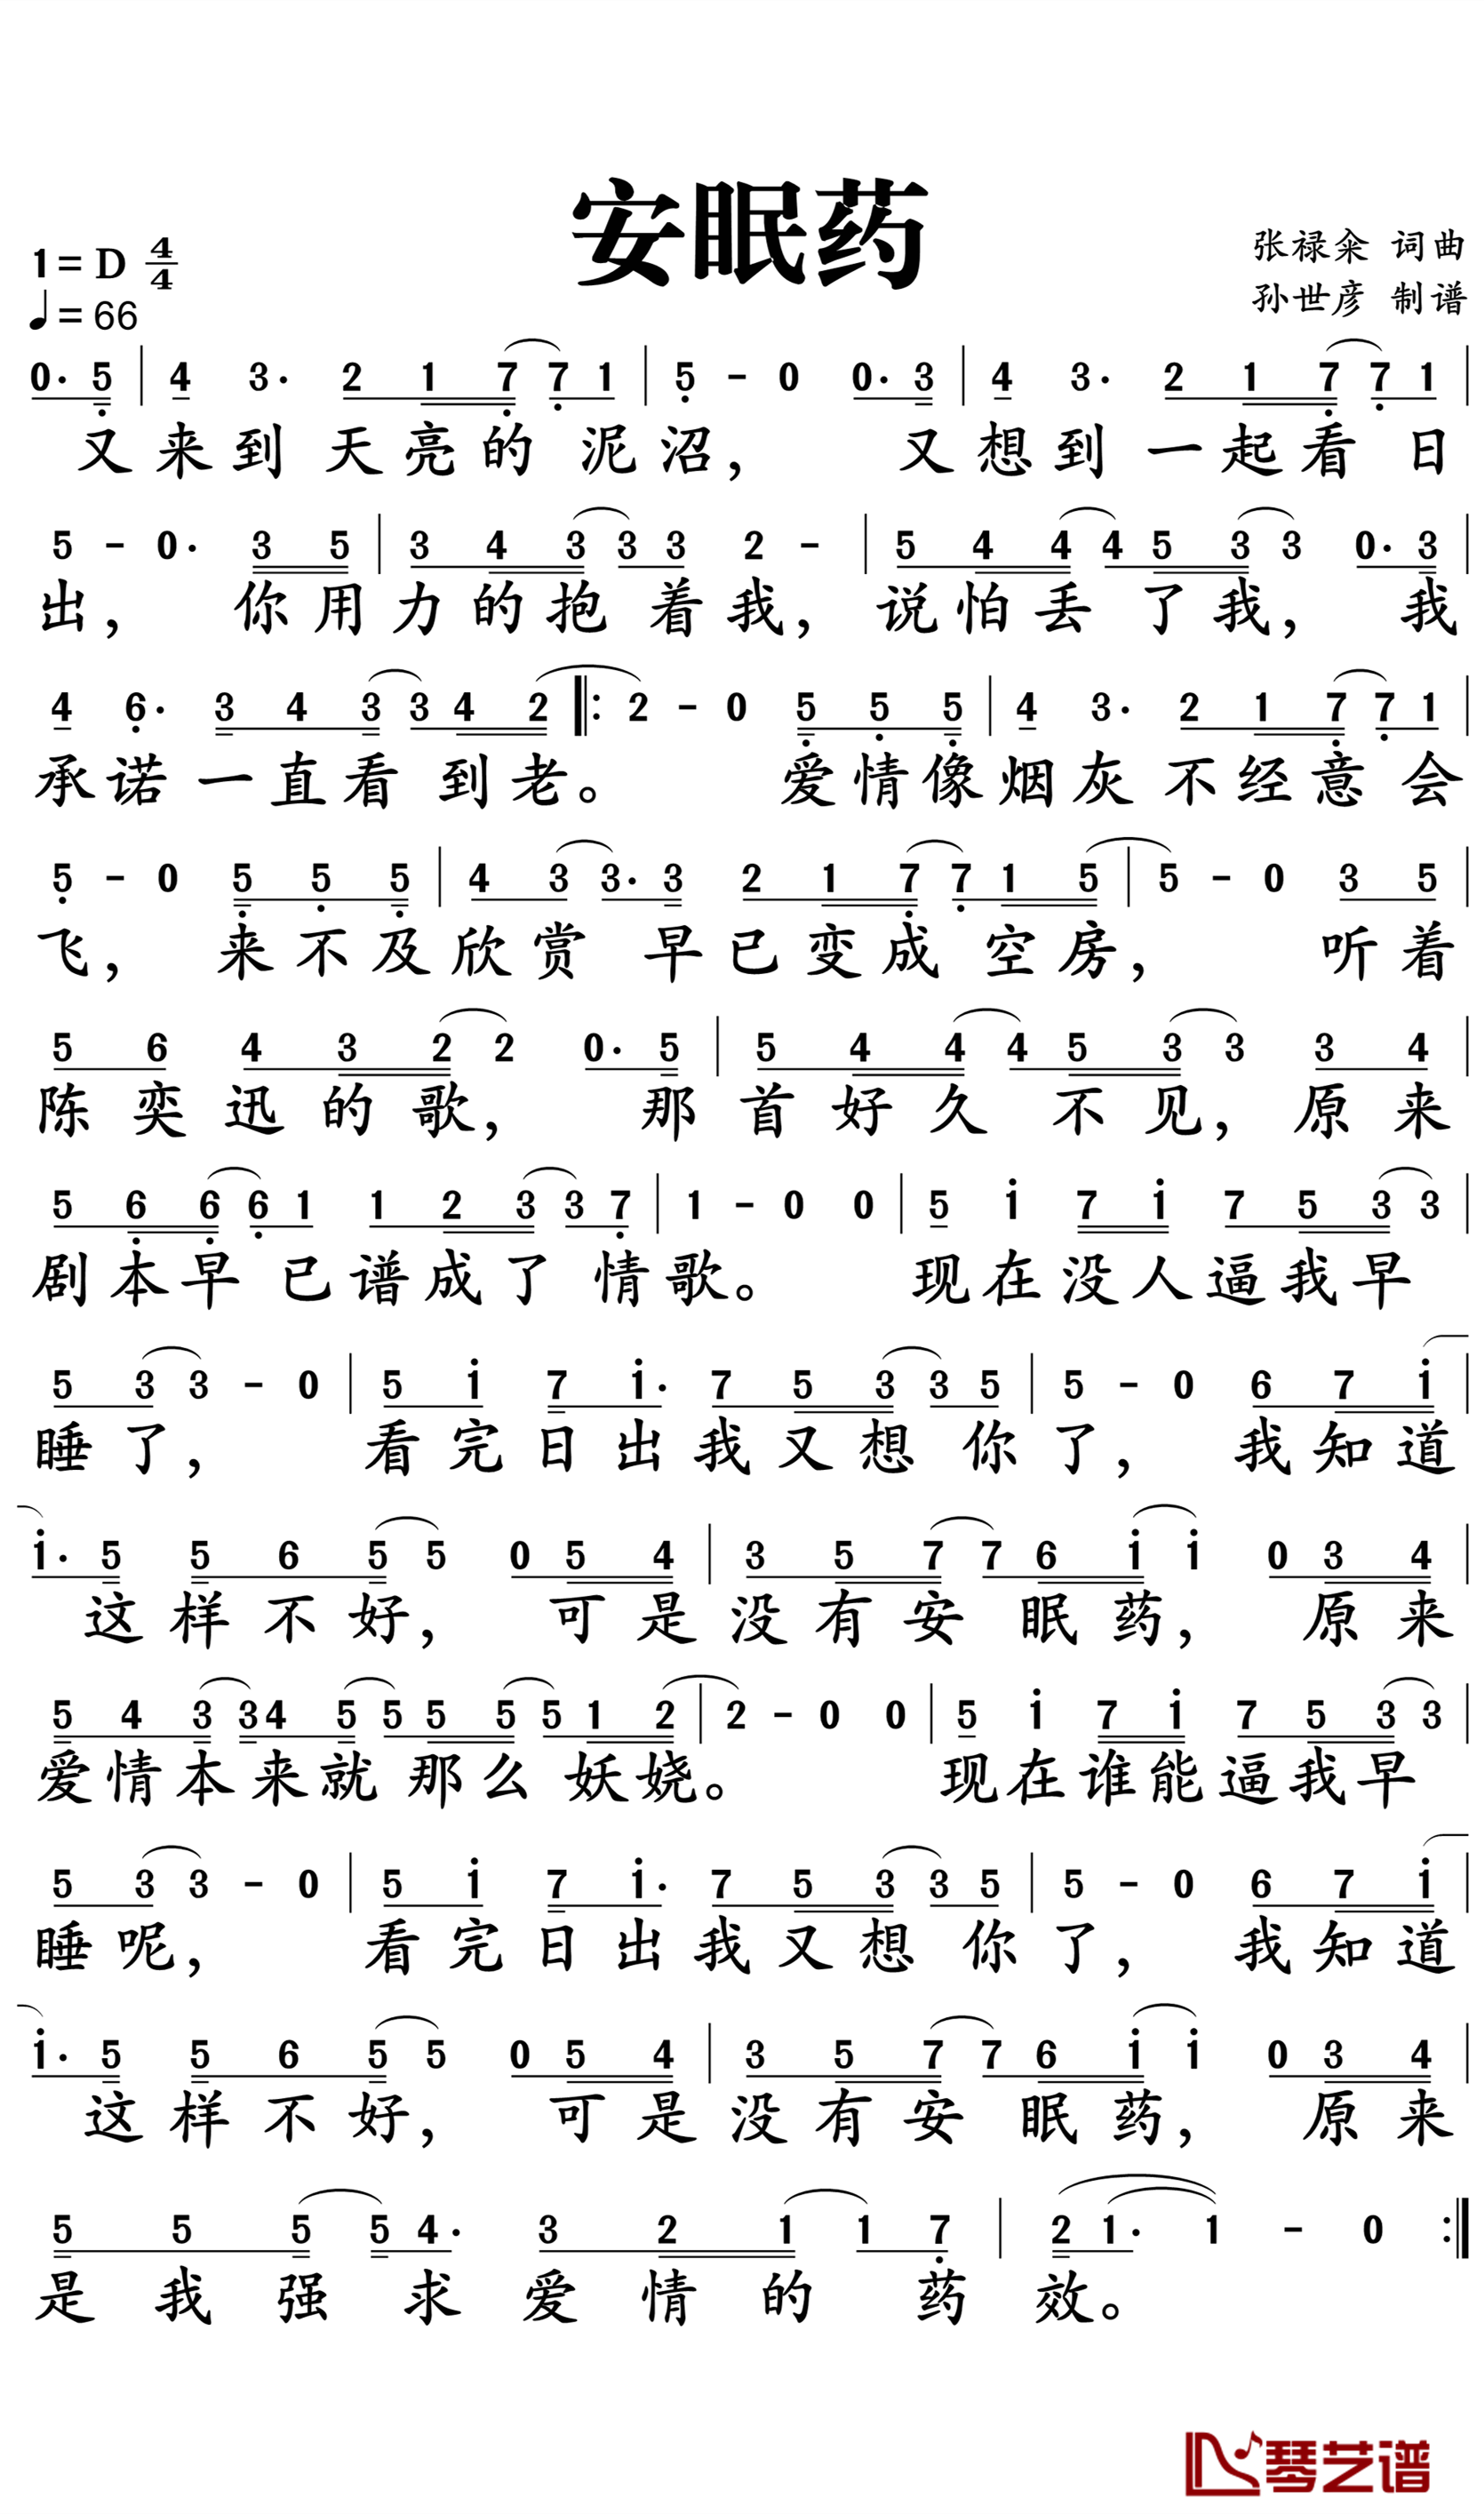 安眠药
1=D 4/4
♩=66
张禄籴 词曲
孙世彦 制谱
0· 5 | 4 3· 2 1 7 7 1 | 5 - 0 0· 3 | 4 3· 2 1 7 7 1 |
又来到天亮的泥沼, 又想到一起看日
5 - 0· 3 5 | 3 4 3 3 3 2 - | 5 4 4 4 5 3 3 0· 3 |
出, 你用力的抱着我, 说怕丢了我, 我
4 6· 3 4 3 3 4 2 |: 2 - 0 5 5 5 | 4 3· 2 1 7 7 1 |
承诺一直看到老。 爱情像烟灰不经意会
5 - 0 5 5 5 | 4 3 3· 3 2 1 7 7 1 5 | 5 - 0 3 5 |
飞, 来不及欣赏早已变成空房, 听着
5 6 4 3 2 2 0· 5 | 5 4 4 4 5 3 3 3 4 |
陈奕迅的歌, 那首好久不见, 原来
5 6 6 6 1 1 2 3 3 7 | 1 - 0 0 | 5 i 7 i 7 5 3 3 |
剧本早已谱成了情歌。 现在没人逼我早
5 3 3 - 0 | 5 i 7 i· 7 5 3 3 5 | 5 - 0 6 7 i |
睡了, 看完日出我又想你了, 我知道
i· 5 5 6 5 5 0 5 4 | 3 5 7 7 6 i i 0 3 4 |
这样不好, 可是没有安眠药, 原来
5 4 3 3 4 5 5 5 5 5 1 2 | 2 - 0 0 | 5 i 7 i 7 5 3 3 |
爱情本来就那么妖娆。 现在谁能逼我早
5 3 3 - 0 | 5 i 7 i· 7 5 3 3 5 | 5 - 0 6 7 i |
睡呢, 看完日出我又想你了, 我知道
i· 5 5 6 5 5 0 5 4 | 3 5 7 7 6 i i 0 3 4 |
这样不好, 可是没有安眠药, 原来
5 5 5 5 4· 3 2 1 1 7 | 2 1· 1 - 0 :|
是我强求爱情的药效。
琴艺谱